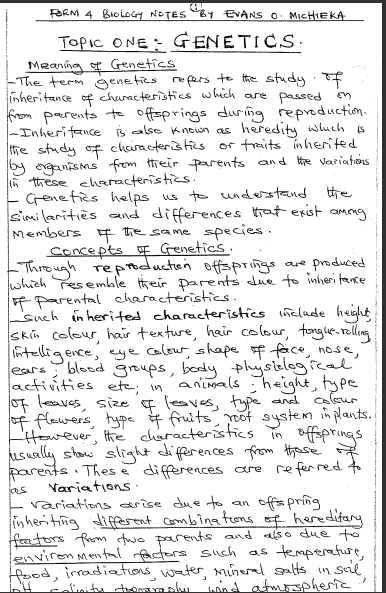 (1)
FORM 4 BIOLOGY NOTES BY EVANS O. MICHIEKA
TOPIC ONE:- GENETICS.
Meaning of Genetics
-The term genetics refers to the study of
inheritance of characteristics which are passed on
from parents to offsprings during reproduction.
-Inheritance is also known as heredity which is
the study of characteristics or traits inherited
by organisms from their parents and the variations
in these characteristics.
- Genetics helps us to understand the
similarities and differences that exist among
members of the same species.
Concepts of Genetics.
-Through reproduction offsprings are produced
which resemble their parents due to inheritance
of parental characteristics.
-Such inherited characteristics include height,
skin colour, hair texture, hair colour, tongue-rolling
intelligence, eye colour, shape of face, nose,
ears, blood groups, body physiological
activities etc, in animals; height, type
of leaves, size of leaves, type and colour
of flowers, type of fruits, root system in plants.
-However, the characteristics in offsprings
usually show slight differences from those of
parents. These differences are referred to
as Variations.
- Variations arise due to an offspring
inheriting different combinations of hereditary
factors from two parents and also due to
environmental factors such as temperature,
food, irradiations, water, mineral salts in soil,
salinity, topography, wind, atmospheric,